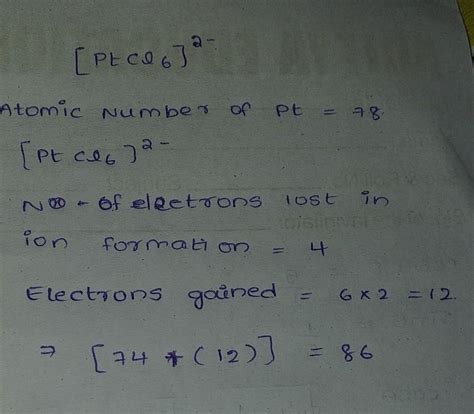 [PtCl6]²⁻
Atomic Number of Pt = 78.
[PtCl6]²⁻
No - of electrons lost in
ion formation = 4
Electrons gained = 6×2 = 12.
⇒ [74 + (12)] = 86